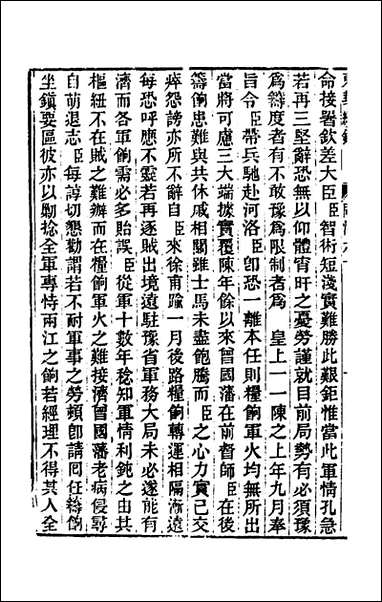 命接署欽差大臣臣智術短淺實難勝此艱鉅惟當此軍情孔急
若再三堅辭恐無以仰體宵旰之憂勞謹就目前局勢有必須豫
爲籌度者有不敢豫爲限制者爲　皇上一一陳之上年九月奉
旨令臣帶兵馳赴河洛臣卽恐一離本任則糧餉軍火均無所出
當將可慮三大端據實覆陳年餘以來曾國藩在前督師臣在後
籌餉患難與共休戚相關雖士馬未盡飽騰而臣之心力實已交
瘁怨謗亦所不辭自臣來徐甫踰一月後路糧餉轉運相隔漸遠
每恐呼應不靈若再逐賊出境遠駐豫省軍務大局未必遂能有
濟而各軍餉需必多貽誤臣從軍十數年稔知軍情利鈍之由其
樞紐不在賊之難辦而在糧餉軍火之難接濟曾國藩老病侵尋
自萌退志臣每諄切懇勸謂若不耐軍事之勞賴卽請囘任籌餉
坐鎭要區彼亦以勦捻全軍專恃兩江之餉若經理不得其人全